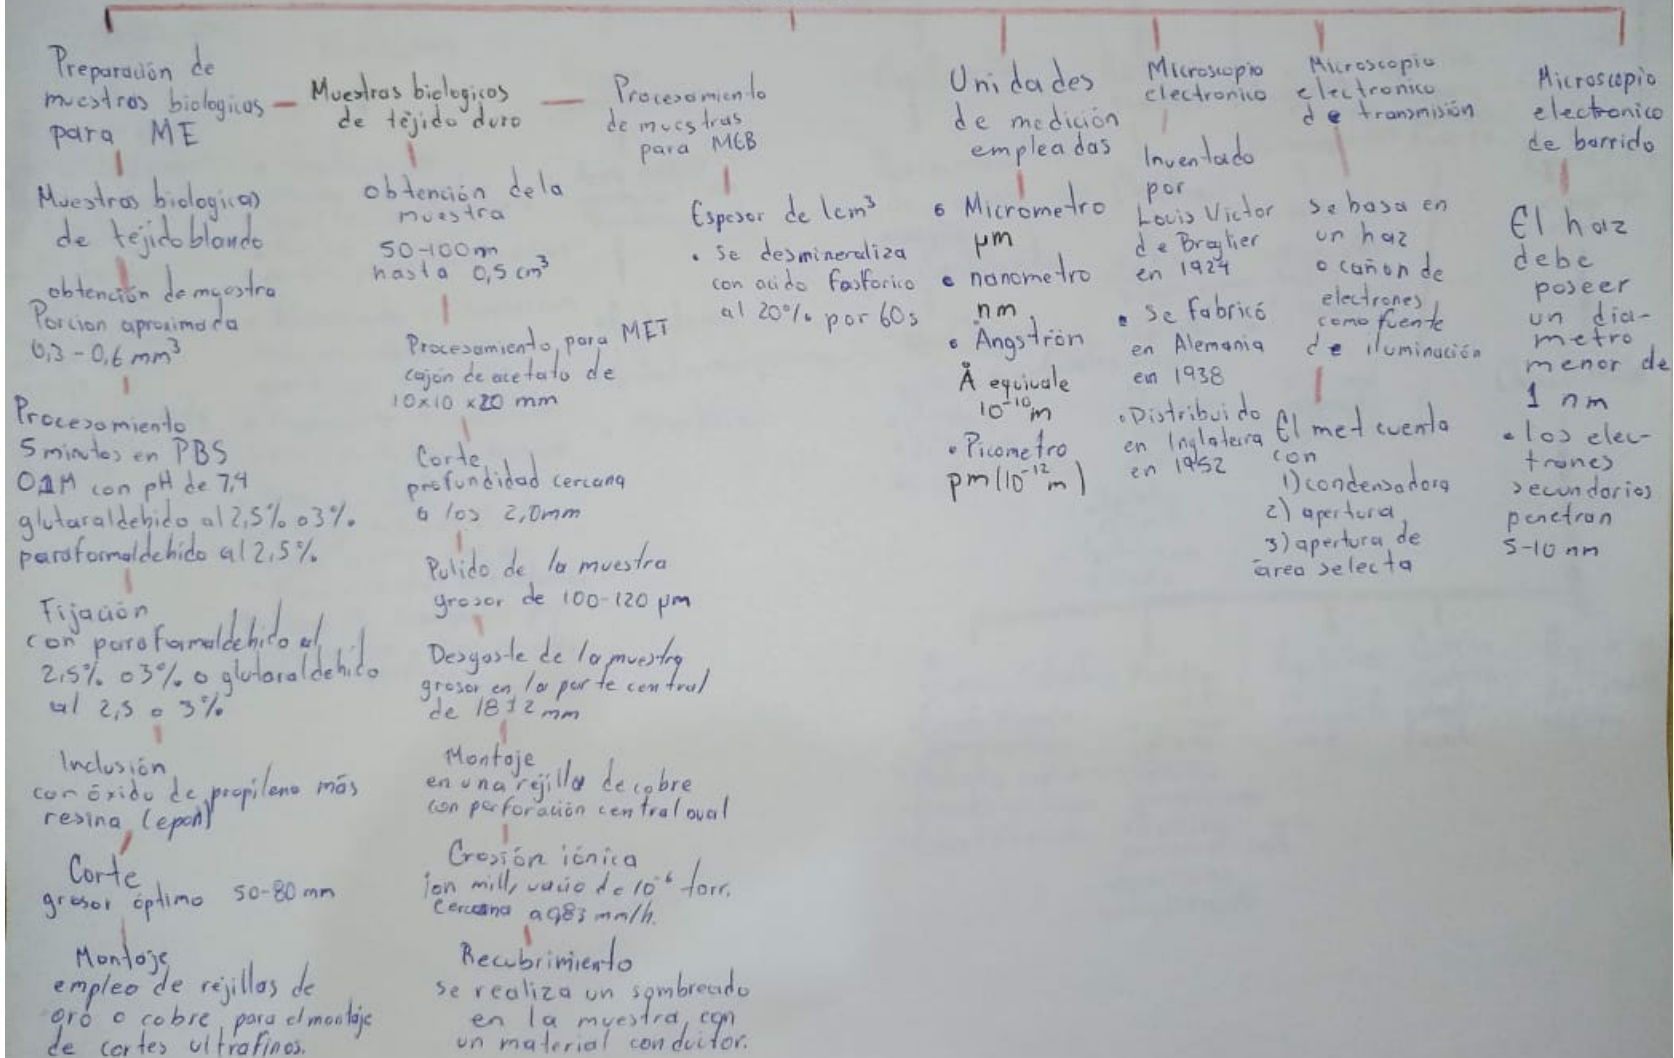 Preparación de
muestras biologicas
para ME
Muestras biologicas
de tejido blando
obtención de muestra
Porcion aproximada
0,3 - 0,6 mm³
Procesamiento
5 minutos en PBS
0.1M con pH de 7,4
glutaraldehido al 2,5% o 3%
paraformaldehido al 2,5%
Fijación
con paraformaldehido al
2,5% o 3% o glutaraldehido
al 2,5 o 3%
Inclusión
con óxido de propileno más
resina (epon)
Corte
grosor óptimo 50-80 mm
Montaje
empleo de rejillas de
oro o cobre para el montaje
de cortes ultrafinos.
Muestras biologicos
de tejido duro
obtención de la
muestra
50-100m
hasta 0,5 cm³
Procesamiento para MET
cajón de acetato de
10x10x20 mm
Corte
profundidad cercana
a los 2,0mm
Pulido de la muestra
grosor de 100-120 µm
Desgaste de la muestra
grosor en la parte central
de 18±2 mm
Montaje
en una rejilla de cobre
con perforación central oval
Erosión iónica
ion mill, vacio de 10⁻⁶ torr.
cercana a 983 mm/h.
Recubrimiento
se realiza un sombreado
en la muestra, con
un material conductor.
Procesamiento
de muestras
para MEB
Espesor de 1cm³
• se desmineraliza
con acido fosforico
al 20% por 60s
Unidades
de medición
empleadas
• Micrometro
µm
• nanometro
nm
• Angstrón
Å equivale
10⁻¹⁰m
• Picometro
pm (10⁻¹²m)
Microscopio
electronico
Inventado
por
Louis Victor
de Broglier
en 1924
• se fabricó
en Alemania
en 1938
• Distribuido
en Inglaterra
en 1952
Microscopio
electronico
de transmisión
se basa en
un haz
o cañon de
electrones
como fuente
de iluminación
El met cuenta
con
1) condensadora
2) apertura
3) apertura de
área selecta
Microscopio
electronico
de barrido
El haz
debe
poseer
un dia-
metro
menor de
1 nm
• los elec-
trones
secundarios
penetran
5-10 nm